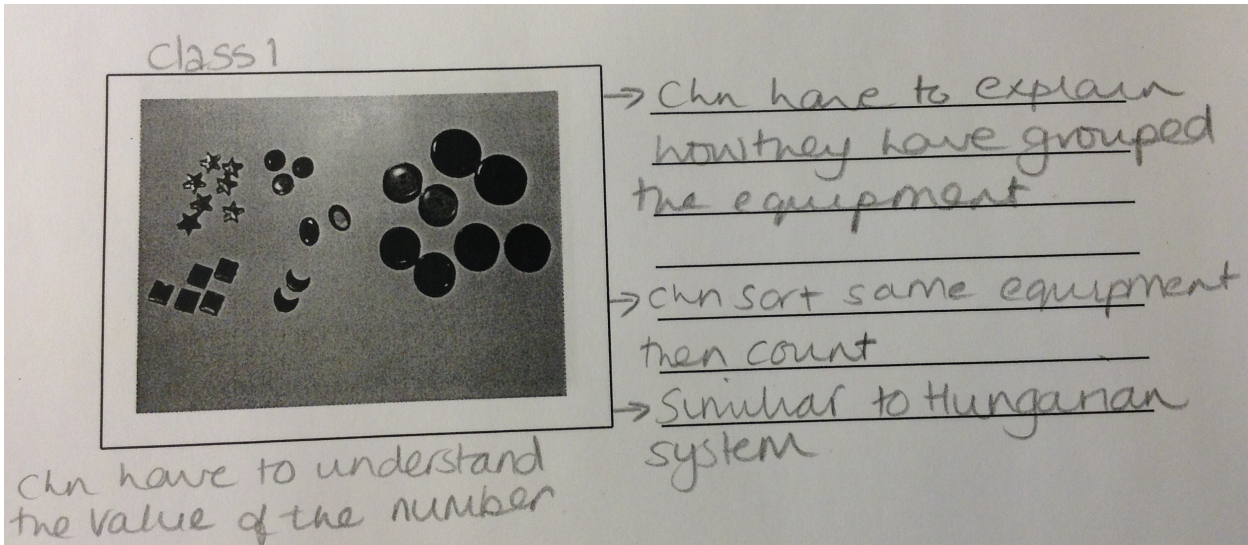 Class 1
→ Chn have to explain
how they have grouped
the equipment
→ Chn sort same equipment
then count
→ Similiar to Hungarian
system
Chn have to understand
the value of the number